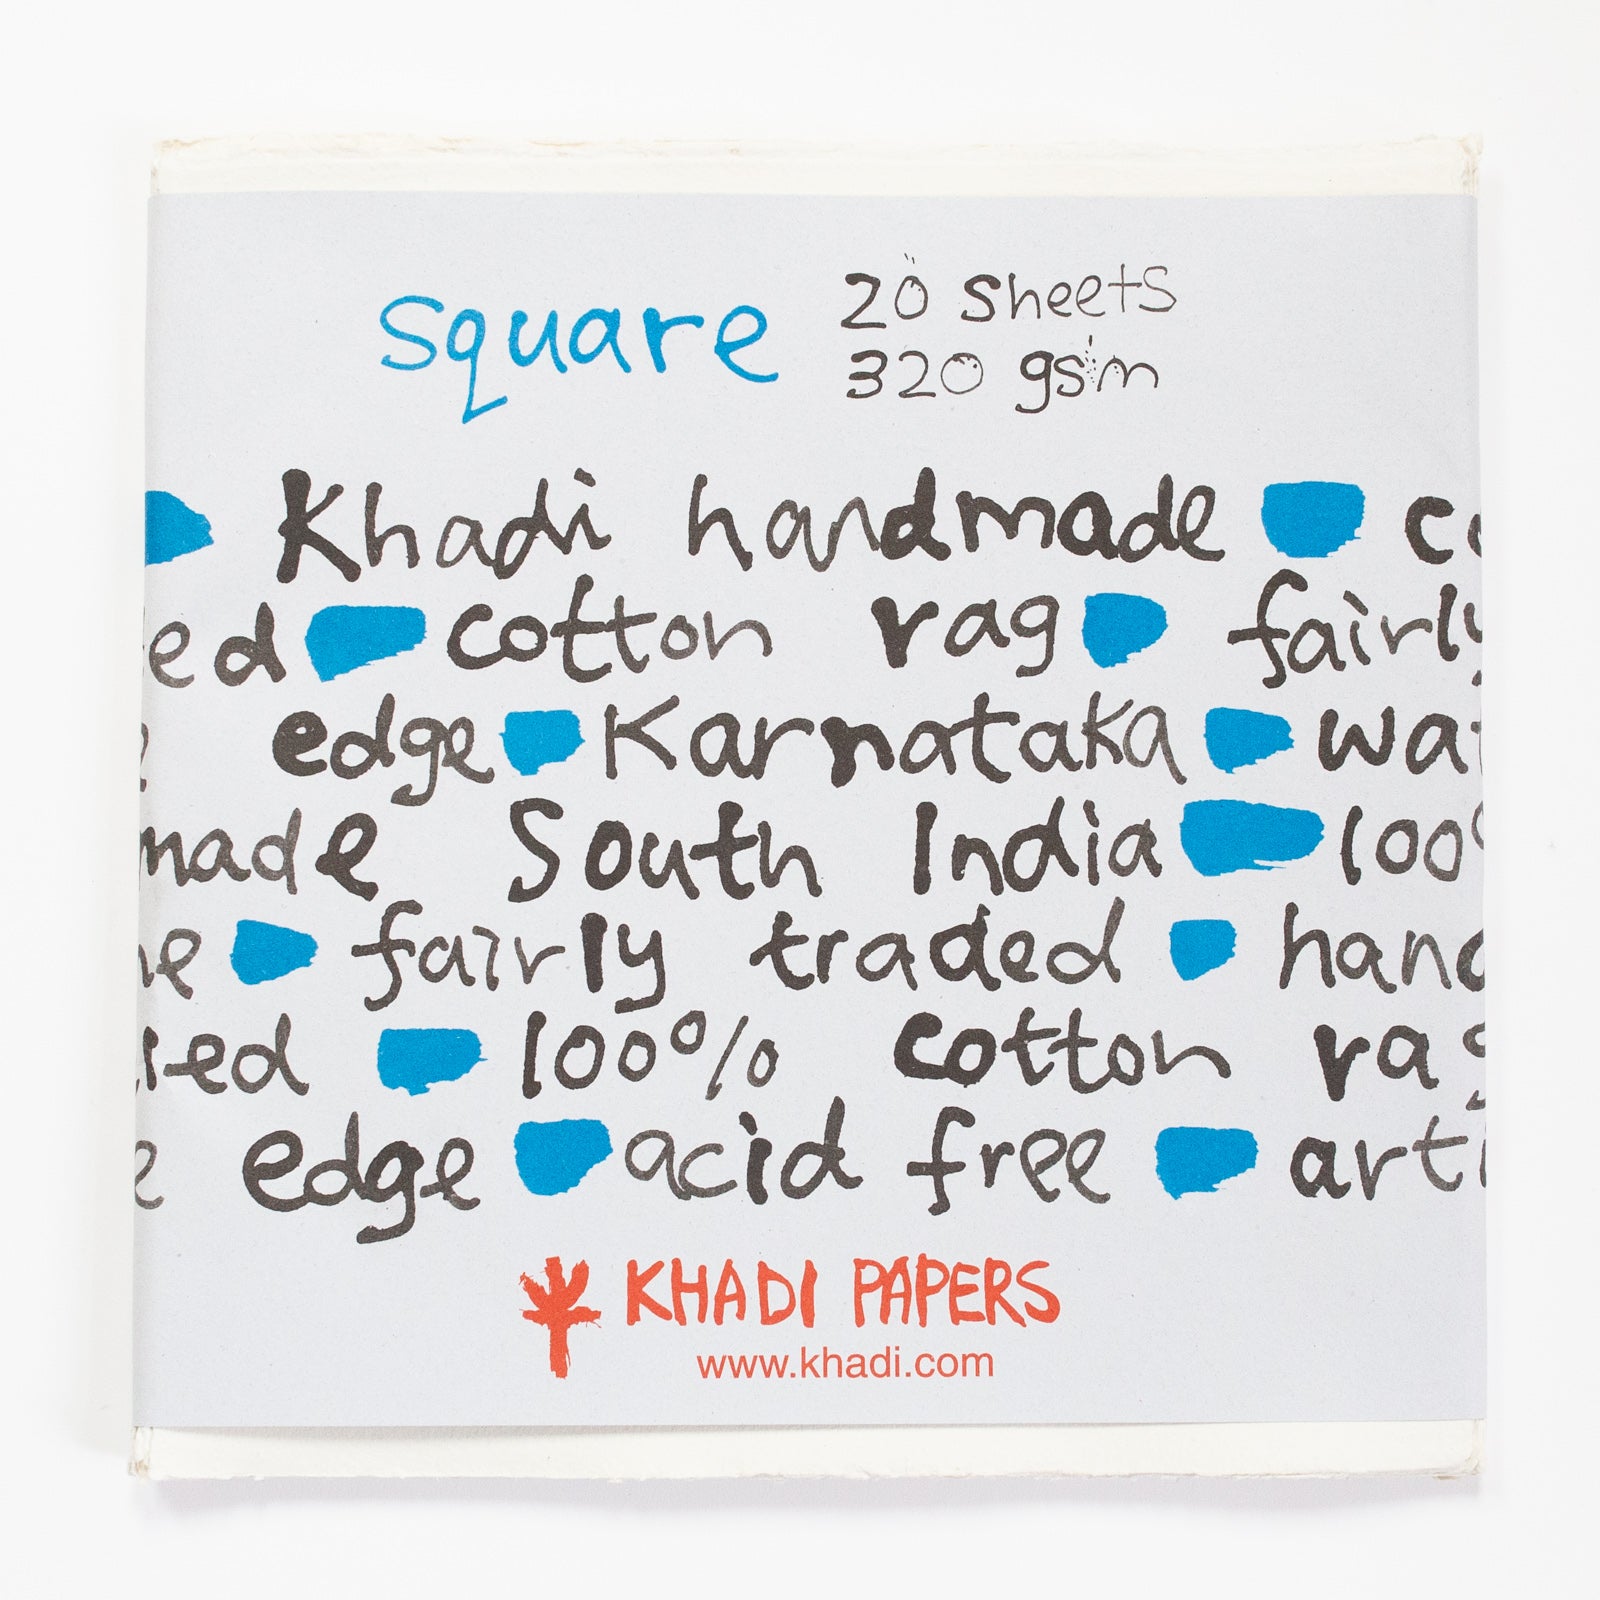 square
20 sheets
320 gsm
Khadi handmade
ed cotton rag fairly
edge Karnataka
made South India 100
fairly traded
100% cotton rag
edge acid free
KHADI PAPERS
www.khadi.com